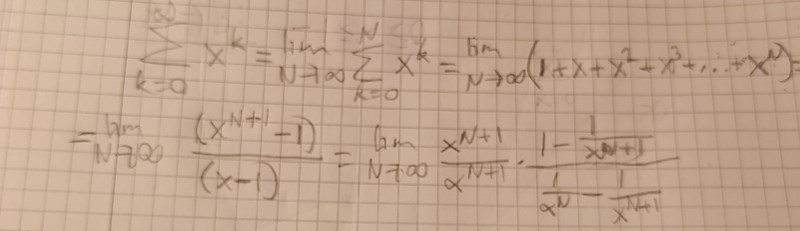 ∑_{k=0}^{∞} x^k = lim_{N→∞} ∑_{k=0}^{N} x^k = lim_{N→∞} (1+x+x^2+x^3+...+x^N) =
= lim_{N→∞} (x^{N+1}-1)/(x-1) = lim_{N→∞} x^{N+1}/x^{N+1} · (1 - 1/x^{N+1})/(1/x^N - 1/x^{N+1})